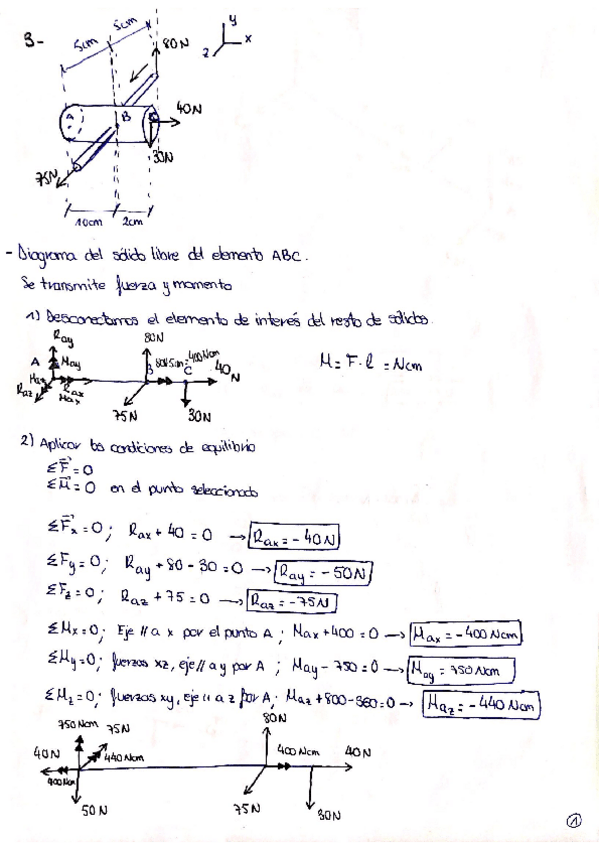 3-
5cm
5cm
80N
y
x
z
A
B
C
40N
30N
75N
10cm
2cm
- Diagrama del sólido libre del elemento ABC.
Se transmite fuerza y momento
1) Desconectamos el elemento de interés del resto de sólidos.
Ray
A
May
Maz
Raz
Rax
Max
80N
B
80N·5cm=400Ncm
C
40N
75N
30N
M = F·l = Ncm
2) Aplicar las condiciones de equilibrio
ΣF⃗ = 0
ΣM⃗ = 0 en el punto seleccionado
ΣF⃗x = 0; Rax + 40 = 0 → Rax = - 40N
ΣFy = 0; Ray + 80 - 30 = 0 → Ray = - 50N
ΣFz = 0; Raz + 75 = 0 → Raz = - 75N
ΣMx = 0; Eje // a x por el punto A; Max + 400 = 0 → Max = - 400Ncm
ΣMy = 0; fuerzas xz, eje // a y por A; May - 750 = 0 → May = 750Ncm
ΣMz = 0; fuerzas xy, eje // a z por A; Maz + 800 - 360 = 0 → Maz = - 440Ncm
750Ncm
75N
440Ncm
40N
400Ncm
50N
80N
400Ncm
40N
75N
30N
1